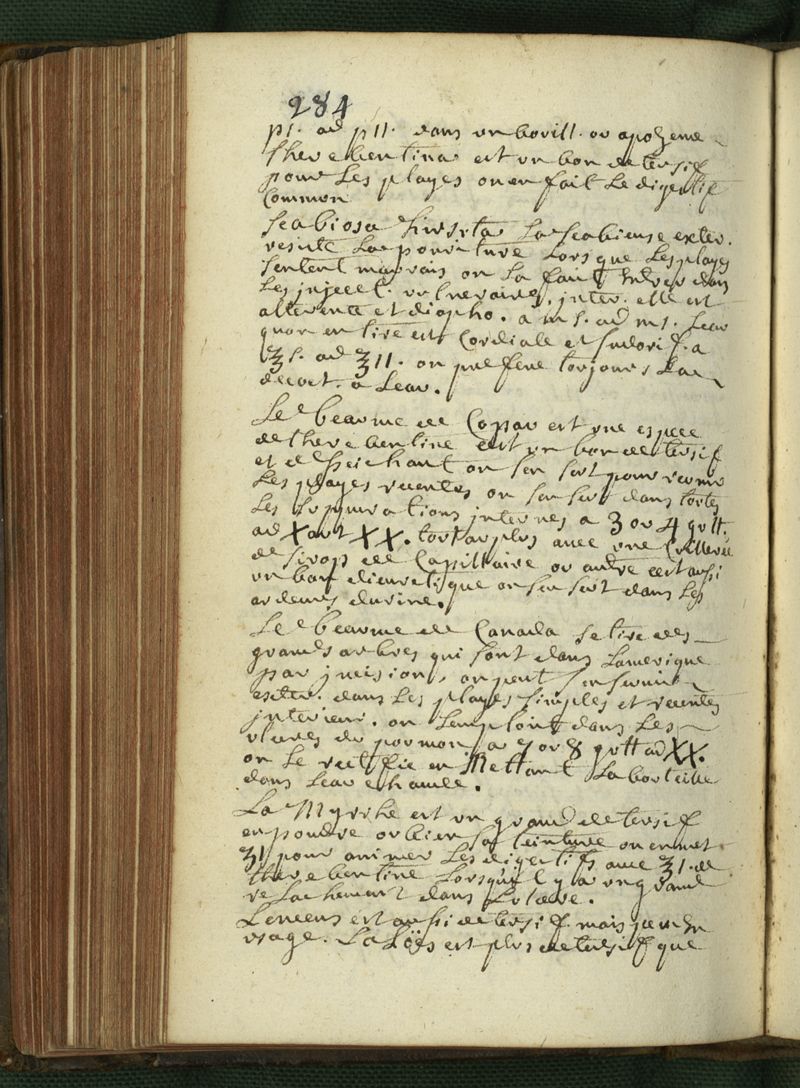 284
p1. ad p11. dans un bouill. ou apozeme
therebentina est un bon detersif
pour les playes on en fait le digestif
Common
Scabiosa hirsuta La scabieuse exter.
resiste La pouriture Lors que Les playes
sentent mauvais on La fait entrer dans
Les inject. vulneraires, inter. elle est
alterente et diapho. a m s. ad m 1. Leau
quon en tire est Cordiale et sudorif. a
ʒ s. ad ʒ 11. on prefere toujours La
decoct. a Leau.
Le beaume de Copau est une espece
de therebentine est un bon detersif
et desseichant on sen sert pour reunir
Les playes recentes on sen sert dans toutes
Les suppurations internes a 3 ou 4 gutt.
ad X aut XX. tout au plus avec une Cuilleree
de sirop de Capillaire ou autre cest aussi
un bon dieuretique on sen sert dans Les
ardeurs durine.
Le beaume de Canada se tire des
grands arbres qui sont dans Lamerique
par jncision, on peut sen servir
exter. dans Les playes simples et recentes
jnterieur. on Lemploit dans Les
ulceres du poumon a 7 ou 8 gutt ad XX.
on Le rectifie en Mettant La bouteille
dans Leau chaude.
La Myrrhe est un grand detersif
en poudre ou bien sa teinture on en met
ʒ1 pour animer Les digestifs avec ʒ1. de
therebentine Lorsquil y a un grand
relachement dans Lulcere.
Lencens est aussi detersif. mais peu en
usage. LaLöes est plus detersif que